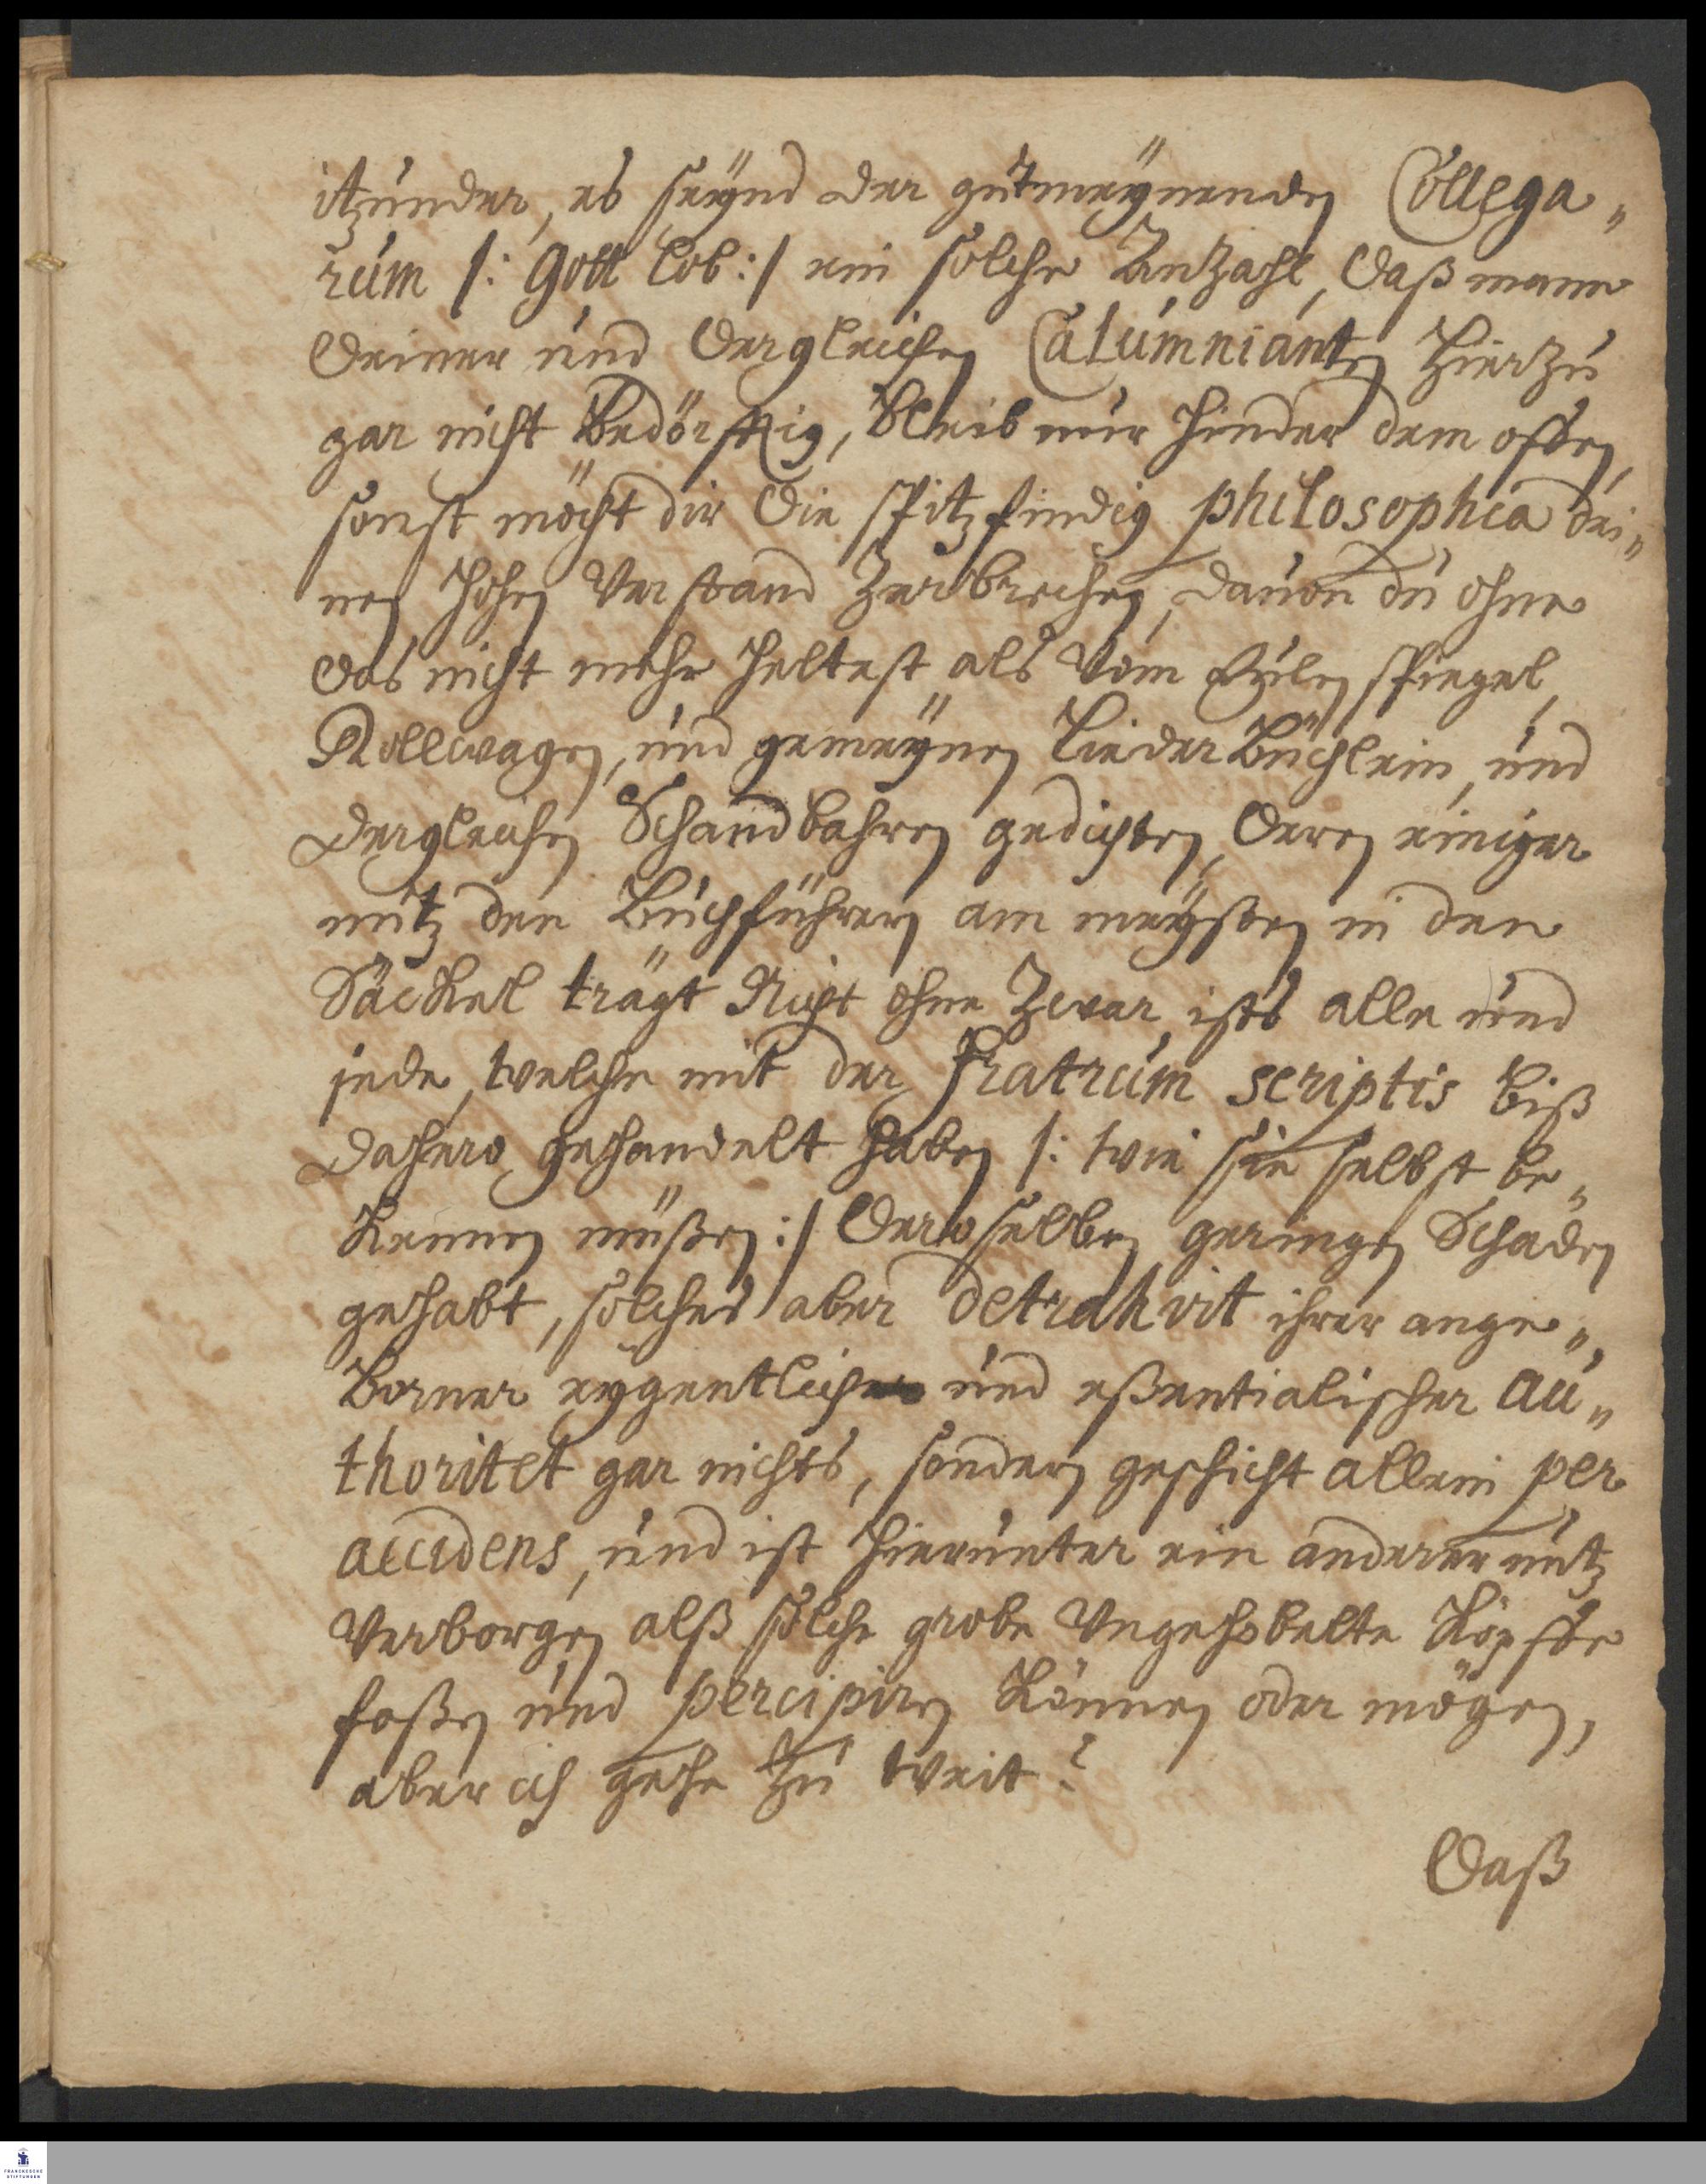 itzunder, es seynd der gutmeynenden Collega„
rum /: Gott lob :/ ein solche Anzahl, daß mann
deiner und dergleichen Calumnianten hierzu
gar nicht bedörfftig, bleib nur hinder dem offen,
sonst möcht dir die spitzfindig philosophia dei„
nen hohen Verstand zerbrechen, dauon du ohne
das nicht mehr heltest als vom Eylenspiegel,
Rollwagen, und gemeynen Lieder Büchlein, und
dergleichen Schandbahren gedichten, deren einiger
nutz den Buchführern am meysten in den
Säckel trägt Nicht ohne zwar ists alle und
jede, welche mit der Fratrum scriptis biß
dahero gehandelt haben /: wie sie selbst be„
kennen müßen :/ deroselben geringen Schaden
gehabt, solches aber detrahirt ihrer ange„
borner eygentlicher und eßentialischer Au„
thoritet gar nichts, sondern geschicht allein per
accidens, und ist hierunter ein anderer nutz
verborgen alß solche grobe Ungehobelte Köpffe
faßen und percipiren können oder mögen,
aber ich gehe zu weit?
Daß
FRANCKESCHE
STIFTUNGEN